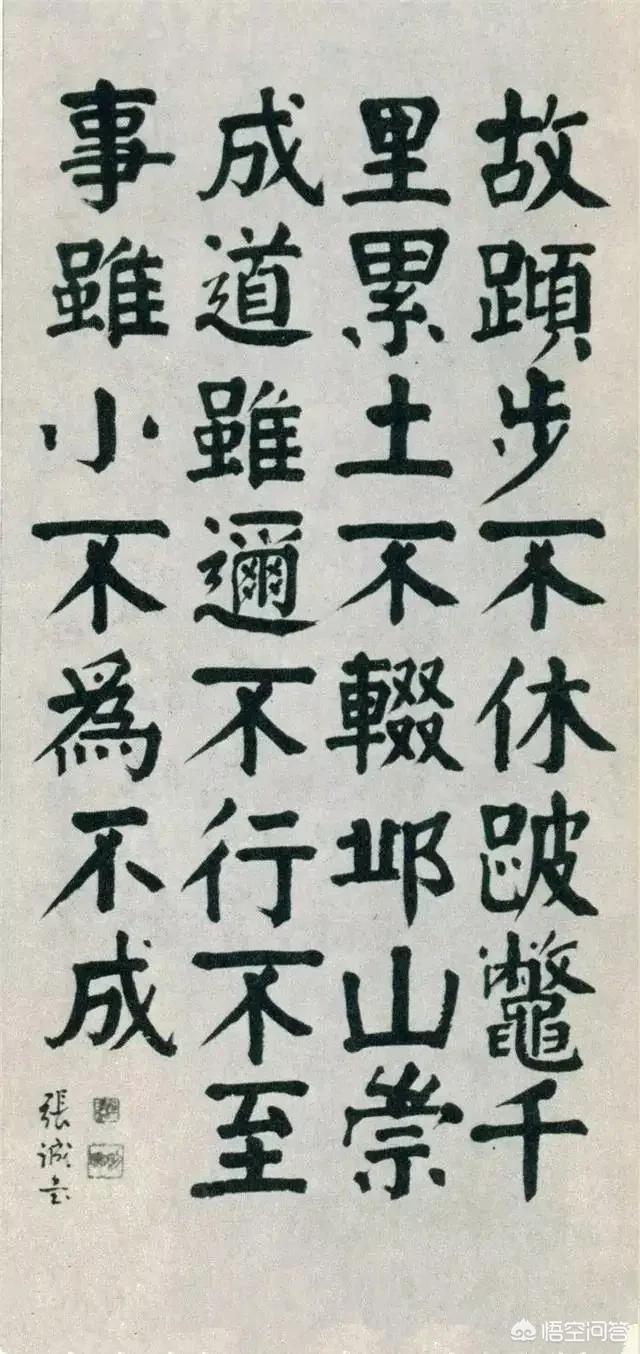 故蹞步不休跛鼈千
里累土不輟邱山崇
成道雖邇不行不至
事雖小不為不成
張誠
悟空问答